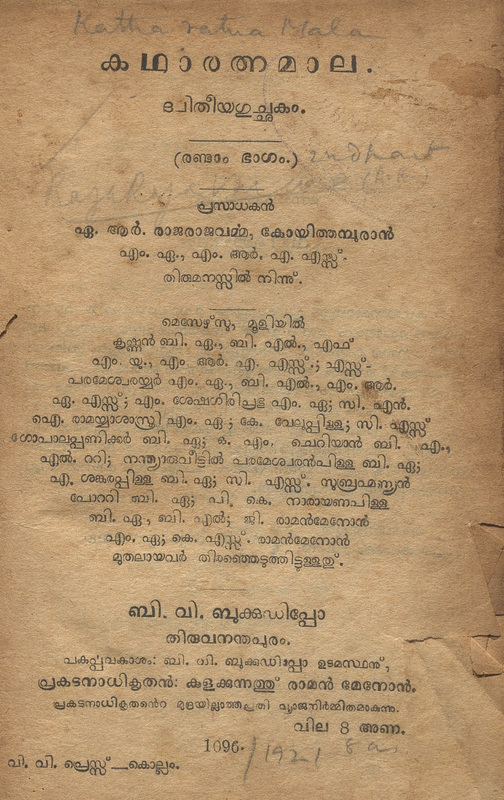 Katha ratna Mala
കഥാരത്നമാല.
ദ്വിതീയഗുച്ഛകം.
(രണ്ടാം ഭാഗം.) 2nd part
പ്രസാധകൻ
ഏ. ആർ. രാജരാജവർമ്മ, കോയിത്തമ്പുരാൻ
എം. ഏ., എം. ആർ. എ. എസ്സ്.
തിരുമനസ്സിൽ നിന്ന്.
മെസേഴ്സ്, മൂളിയിൽ
കൃഷ്ണൻ ബി. ഏ., ബി. എൽ., എഫ്
എം. യു., എം. ആർ. എ. എസ്സ്.; എസ്സ്.
പരമേശ്വരയ്യർ എം. ഏ., ബി. എൽ., എം. ആർ.
ഏ. എസ്സ്; എം. ശേഷഗിരിപ്രഭു എം. ഏ; സി. എൻ.
ഐ. രാമയ്യാശാസ്ത്രി എം. ഏ.; കേ. വേലുപ്പിള്ള; സി. എസ്സ്
ഗോപാലപ്പണിക്കർ ബി. ഏ; ഓ. എം. ചെറിയാൻ ബി. ഏ.,
എൽ. ററി; നന്ത്യാരുവീട്ടിൽ പരമേശ്വരൻപിള്ള ബി. ഏ;
എ. ശങ്കരപ്പിള്ള ബി. ഏ; സി. എസ്സ്. സുബ്രഹ്മണ്യൻ
പോററി ബി. ഏ; പി. കെ. നാരായണപിള്ള
ബി. ഏ., ബി. എൽ; ജി. രാമൻമേനോൻ
എം. ഏ; കെ. എസ്സ്. രാമൻമേനോൻ
മുതലായവർ തിരഞ്ഞെടുത്തിട്ടുള്ളതു്.
ബി. വി. ബുക്കുഡിപ്പോ
തിരുവനന്തപുരം.
പകർപ്പവകാശം: ബി. വി. ബുക്കുഡിപ്പോ ഉടമസ്ഥന്ന്,
പ്രകടനാധികൃതൻ: കുളക്കുന്നത്തു് രാമൻ മേനോൻ.
പ്രകടനാധികൃതൻെറ മുദ്രയില്ലാത്തപ്രതി വ്യാജനിർമ്മിതമാകുന്നു.
വില 8 അണ.
1096. / 1921 8 as.
വി. വി. പ്രെസ്സ്—കൊല്ലം.